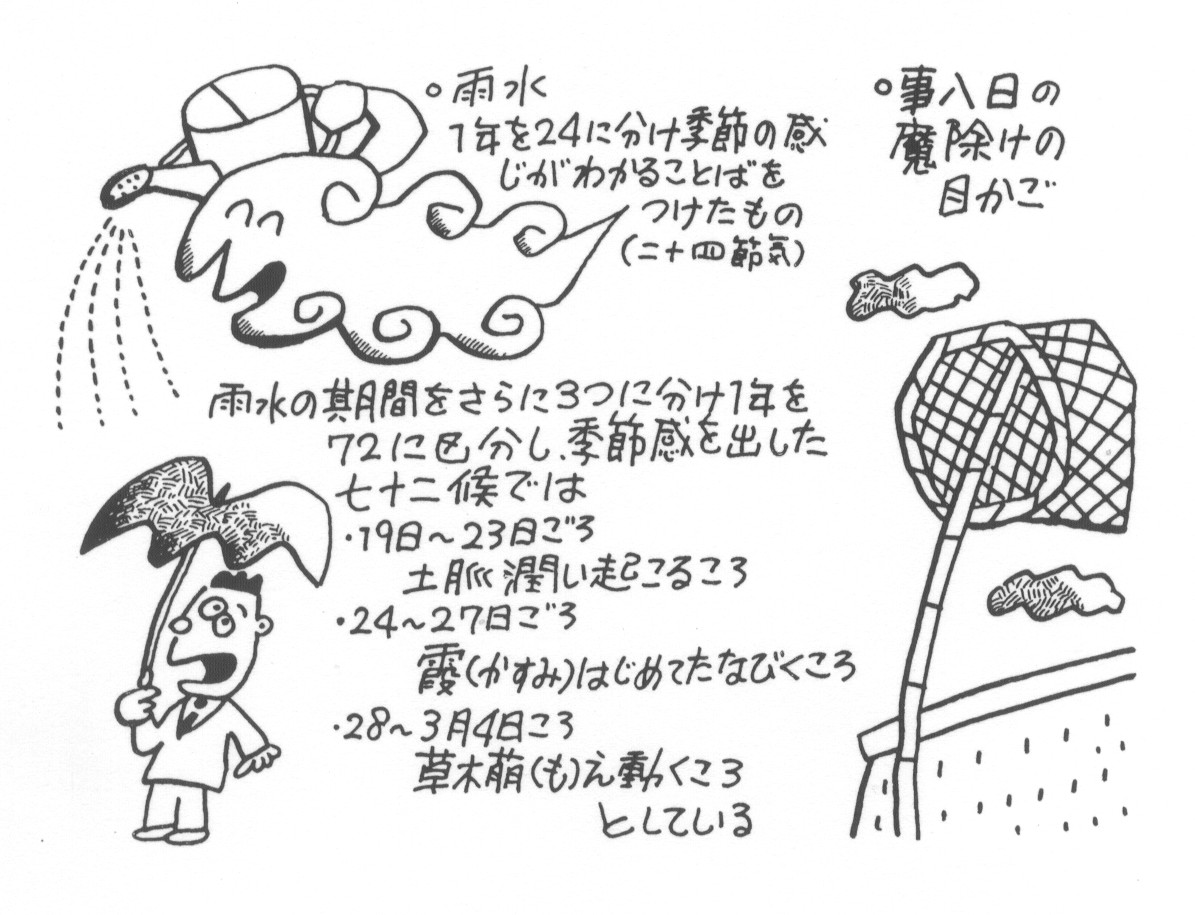 ○雨水
1年を24に分け季節の感
じがわかることばを
つけたもの
(二十四節気)
雨水の期間をさらに3つに分け1年を
72に区分し、季節感を出した
七十二候では
・19日~23日ごろ
土脈潤い起こるころ
・24~27日ごろ
霞(かすみ)はじめてたなびくころ
・28~3月4日ころ
草木萌(も)え動くころ
としている
○事八日の
魔除けの
目かご